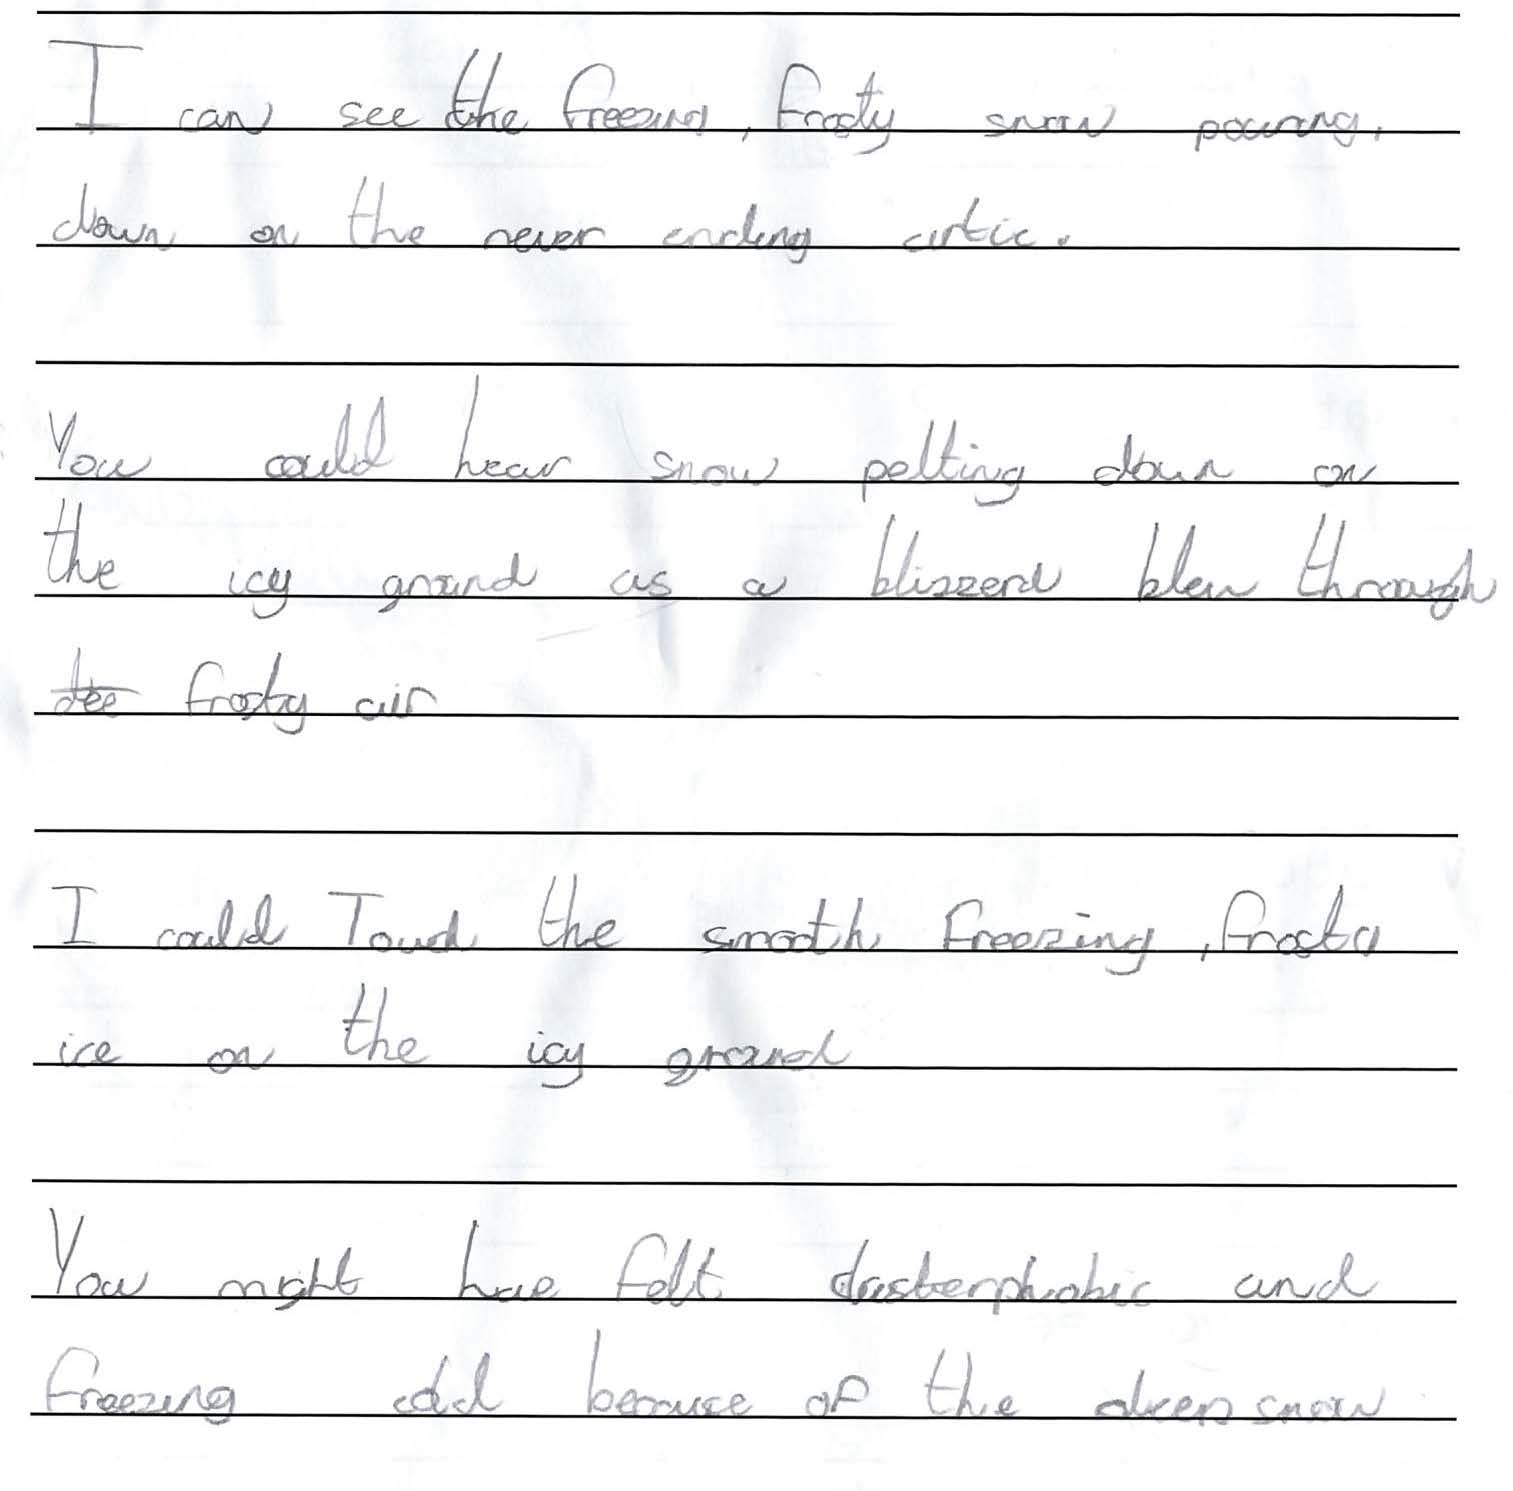 I can see the freezing, frosty snow pouring.
down on the never ending artic.
You could hear snow pelting down on
the icy ground as a blizzerd blew through
the frosty air
I could Touch the smooth freezing, frosty
ice on the icy ground
You might have felt clasterphobic and
freezing cold because of the deep snow